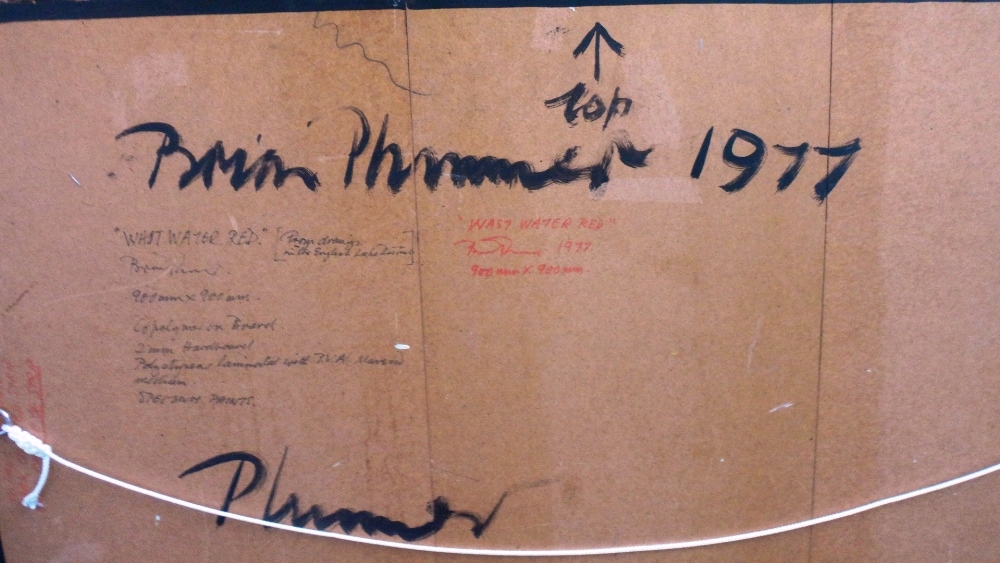 top
Brian Plummer 1977
"WAST WATER RED"
1977.
900mm x 900mm.
"WAST WATER RED." [From drawings
in the English Lake District]
Brian Plummer.
900mm x 900mm.
Copolymer on Board.
2mm Hardboard
Polystyrene laminated with P.V.A. Marvin
medium
PAINTS.
Plummer